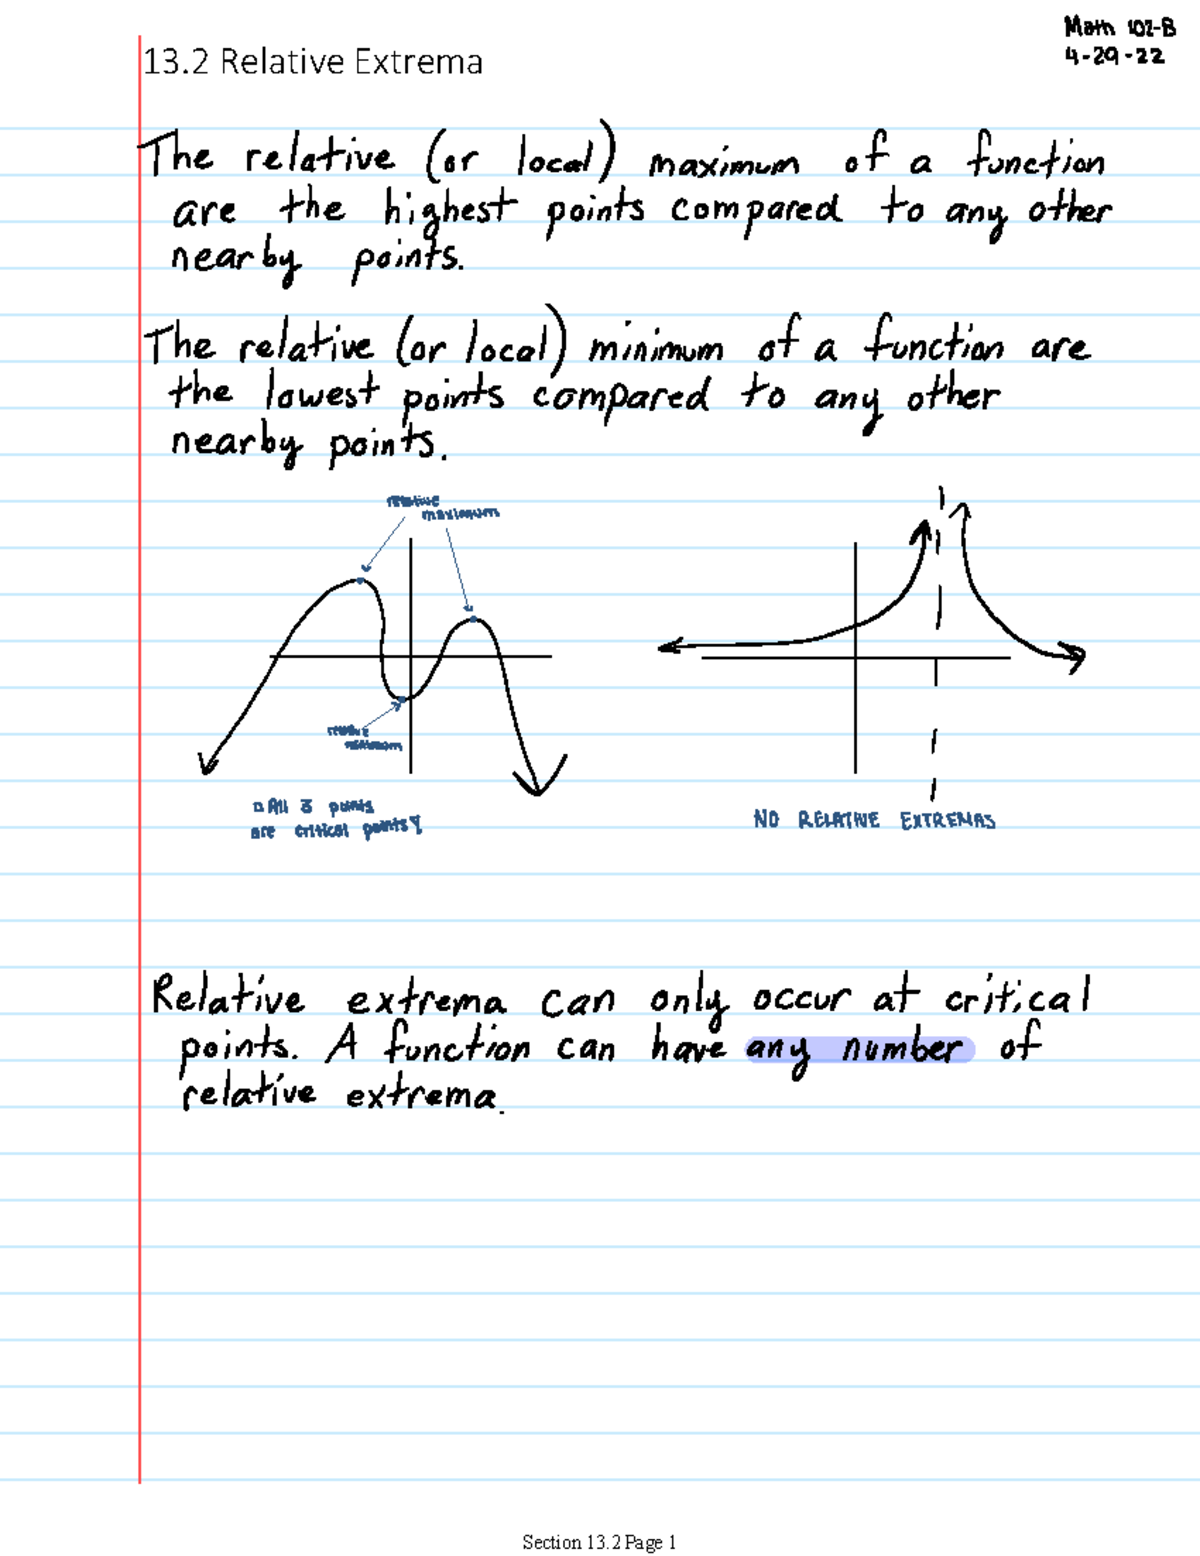 Math 102-B
4-29-22
13.2 Relative Extrema
The relative (or local) maximum of a function
are the highest points compared to any other
nearby points.
The relative (or local) minimum of a function are
the lowest points compared to any other
nearby points.
relative
maximum
relative
minimum
All 3 points
are critical points
NO RELATIVE EXTREMAS
Relative extrema can only occur at critical
points. A function can have any number of
relative extrema.
Section 13.2 Page 1